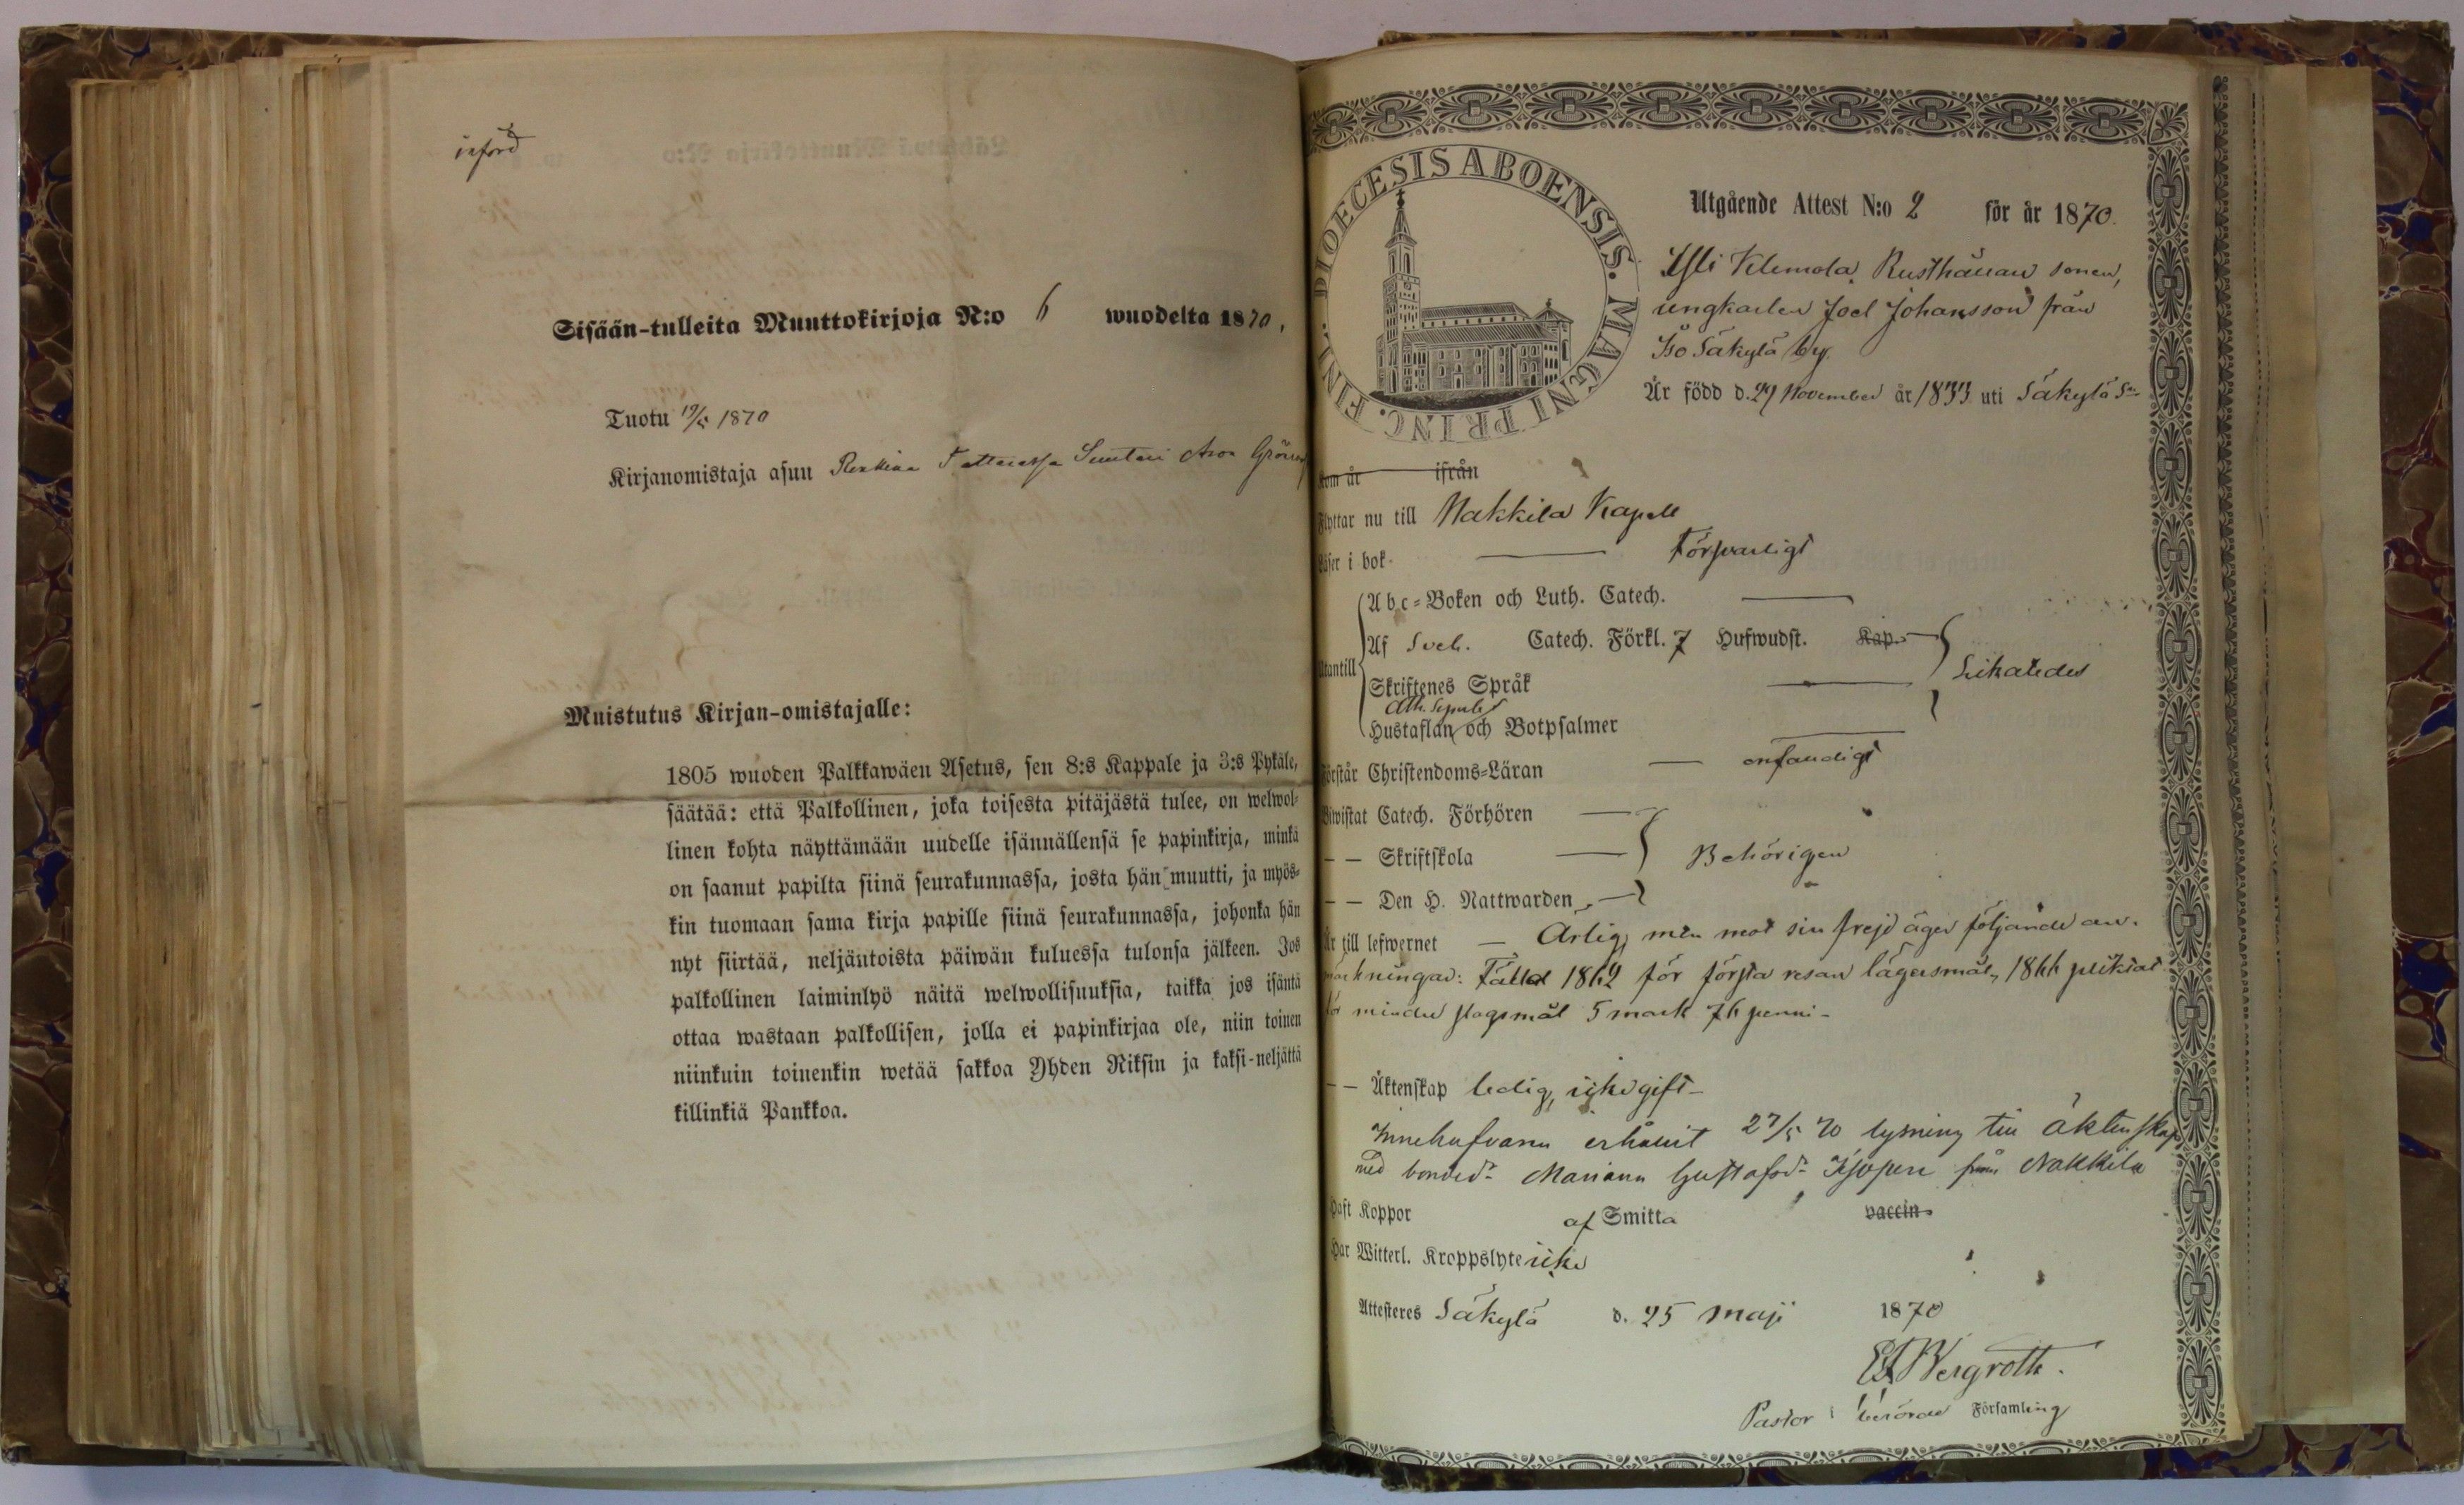 införd
Sisään-tulleita Muuttokirjoja N:o 6 wuodelta 1870,
Tuotu 19/5 1870
Kirjanomistaja asuu Suutari Aron
Muistutus Kirjan-omistajalle:
1805 wuoden Palkkawäen Asetus, sen 8:s Kappale ja 3:s Pykäle,
säätää: että Palkollinen, joka toisesta pitäjästä tulee, on welwol-
linen kohta näyttämään uudelle isännällensä se papinkirja, minkä
on saanut papilta siinä seurakunnassa, josta hän muutti, ja myös-
kin tuomaan sama kirja papille siinä seurakunnassa, johonka hän
nyt siirtää, neljäntoista päiwän kuluessa tulonsa jälkeen. Jos
palkollinen laiminlyö näitä welwollisuuksia, taikka jos isäntä
ottaa wastaan palkollisen, jolla ei papinkirjaa ole, niin toinen
niinkuin toinenkin wetää sakkoa Yhden Riksin ja kaksi-neljättä
killinkiä Pankkoa.
DIOECESIS ABOENSIS. MAGNI PRINC. FINL.
Utgående Attest N:o 2 för år 1870.
Klemola Rusthållare sonen,
ungkarlen Joel Johansson från
Iso Säkylä by.
Är född d. 29 November år 1833 uti Säkylä Sn
Kom år ifrån
Flyttar nu till Nakkila Kapell
Läser i bok Försvarligt
Abc-Boken och Luth. Catech.
Af Sveb. Catech. Förkl. 7 Hufwudst. Kap.
Utantill
Likaledes
Skriftenes Språk
Ath. Symb.
Hustaflan och Botpsalmer
Förstår Christendoms-Läran enfaldigt
Biwistat Catech. Förhören
— — Skriftskola Behörigen
— — Den H. Nattwarden
Är till lefwernet — Ärlig, men mot sin frejd äger följande an-
märkningar: Fälld 1862 för första resan lägersmål, 1866 pliktat
för mindre slagsmål 5 mark 76 penni -
— — Äktenskap ledig, icke gift -
Innehafvaren erhållit 27/5 70 lysning till äktenskap
med bonded. Mariana Gustafsd. från Nakkila
Haft Koppor af Smitta vaccin.
Har Witterl. Kroppslyte icke
Attesteres Säkylä d. 25 Maji 1870
Bergroth.
Pastor i berörde Församling